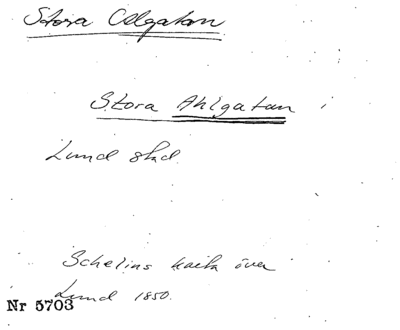 Stora Algatan
Stora Ahlgatan i
Lund stad.
Schelins karta över
Lund 1850.
Nr 5703